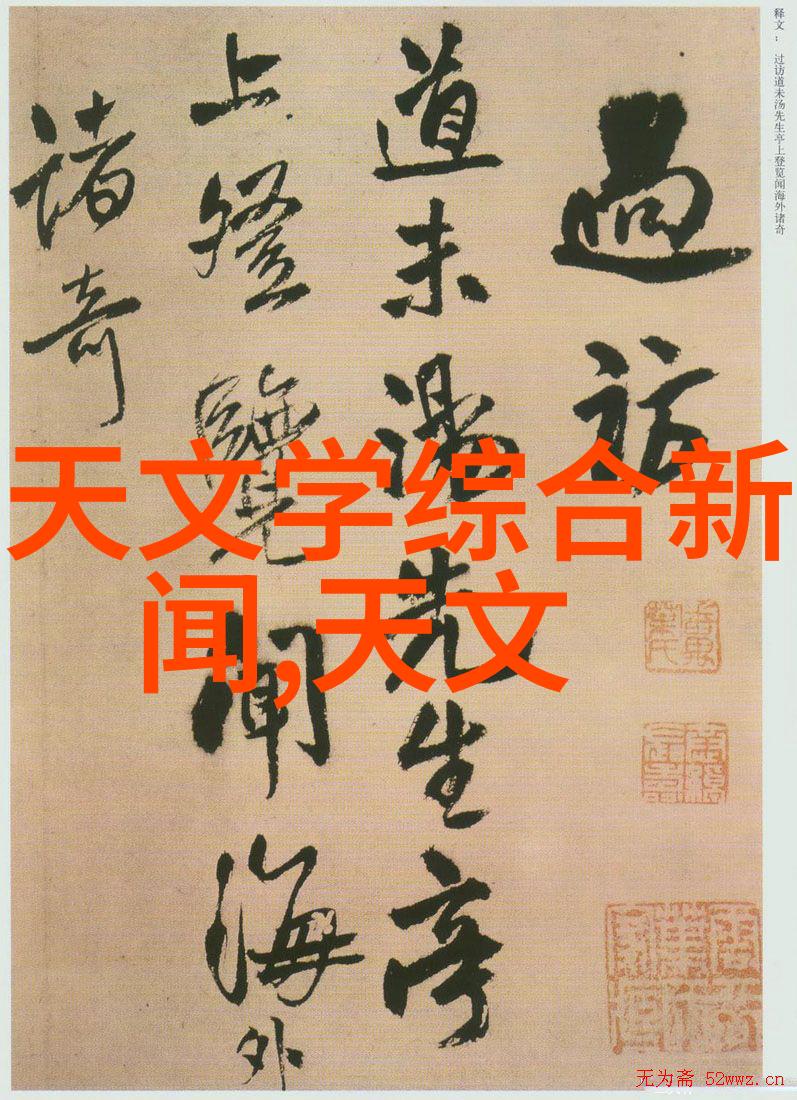 释文： 过访道未汤先生亭上登览闻海外诸奇
過訪
道未湯先生亭
上登覽聞海外
諸奇
天文学综合新
闻,天文
无为斋 52wwz.cn